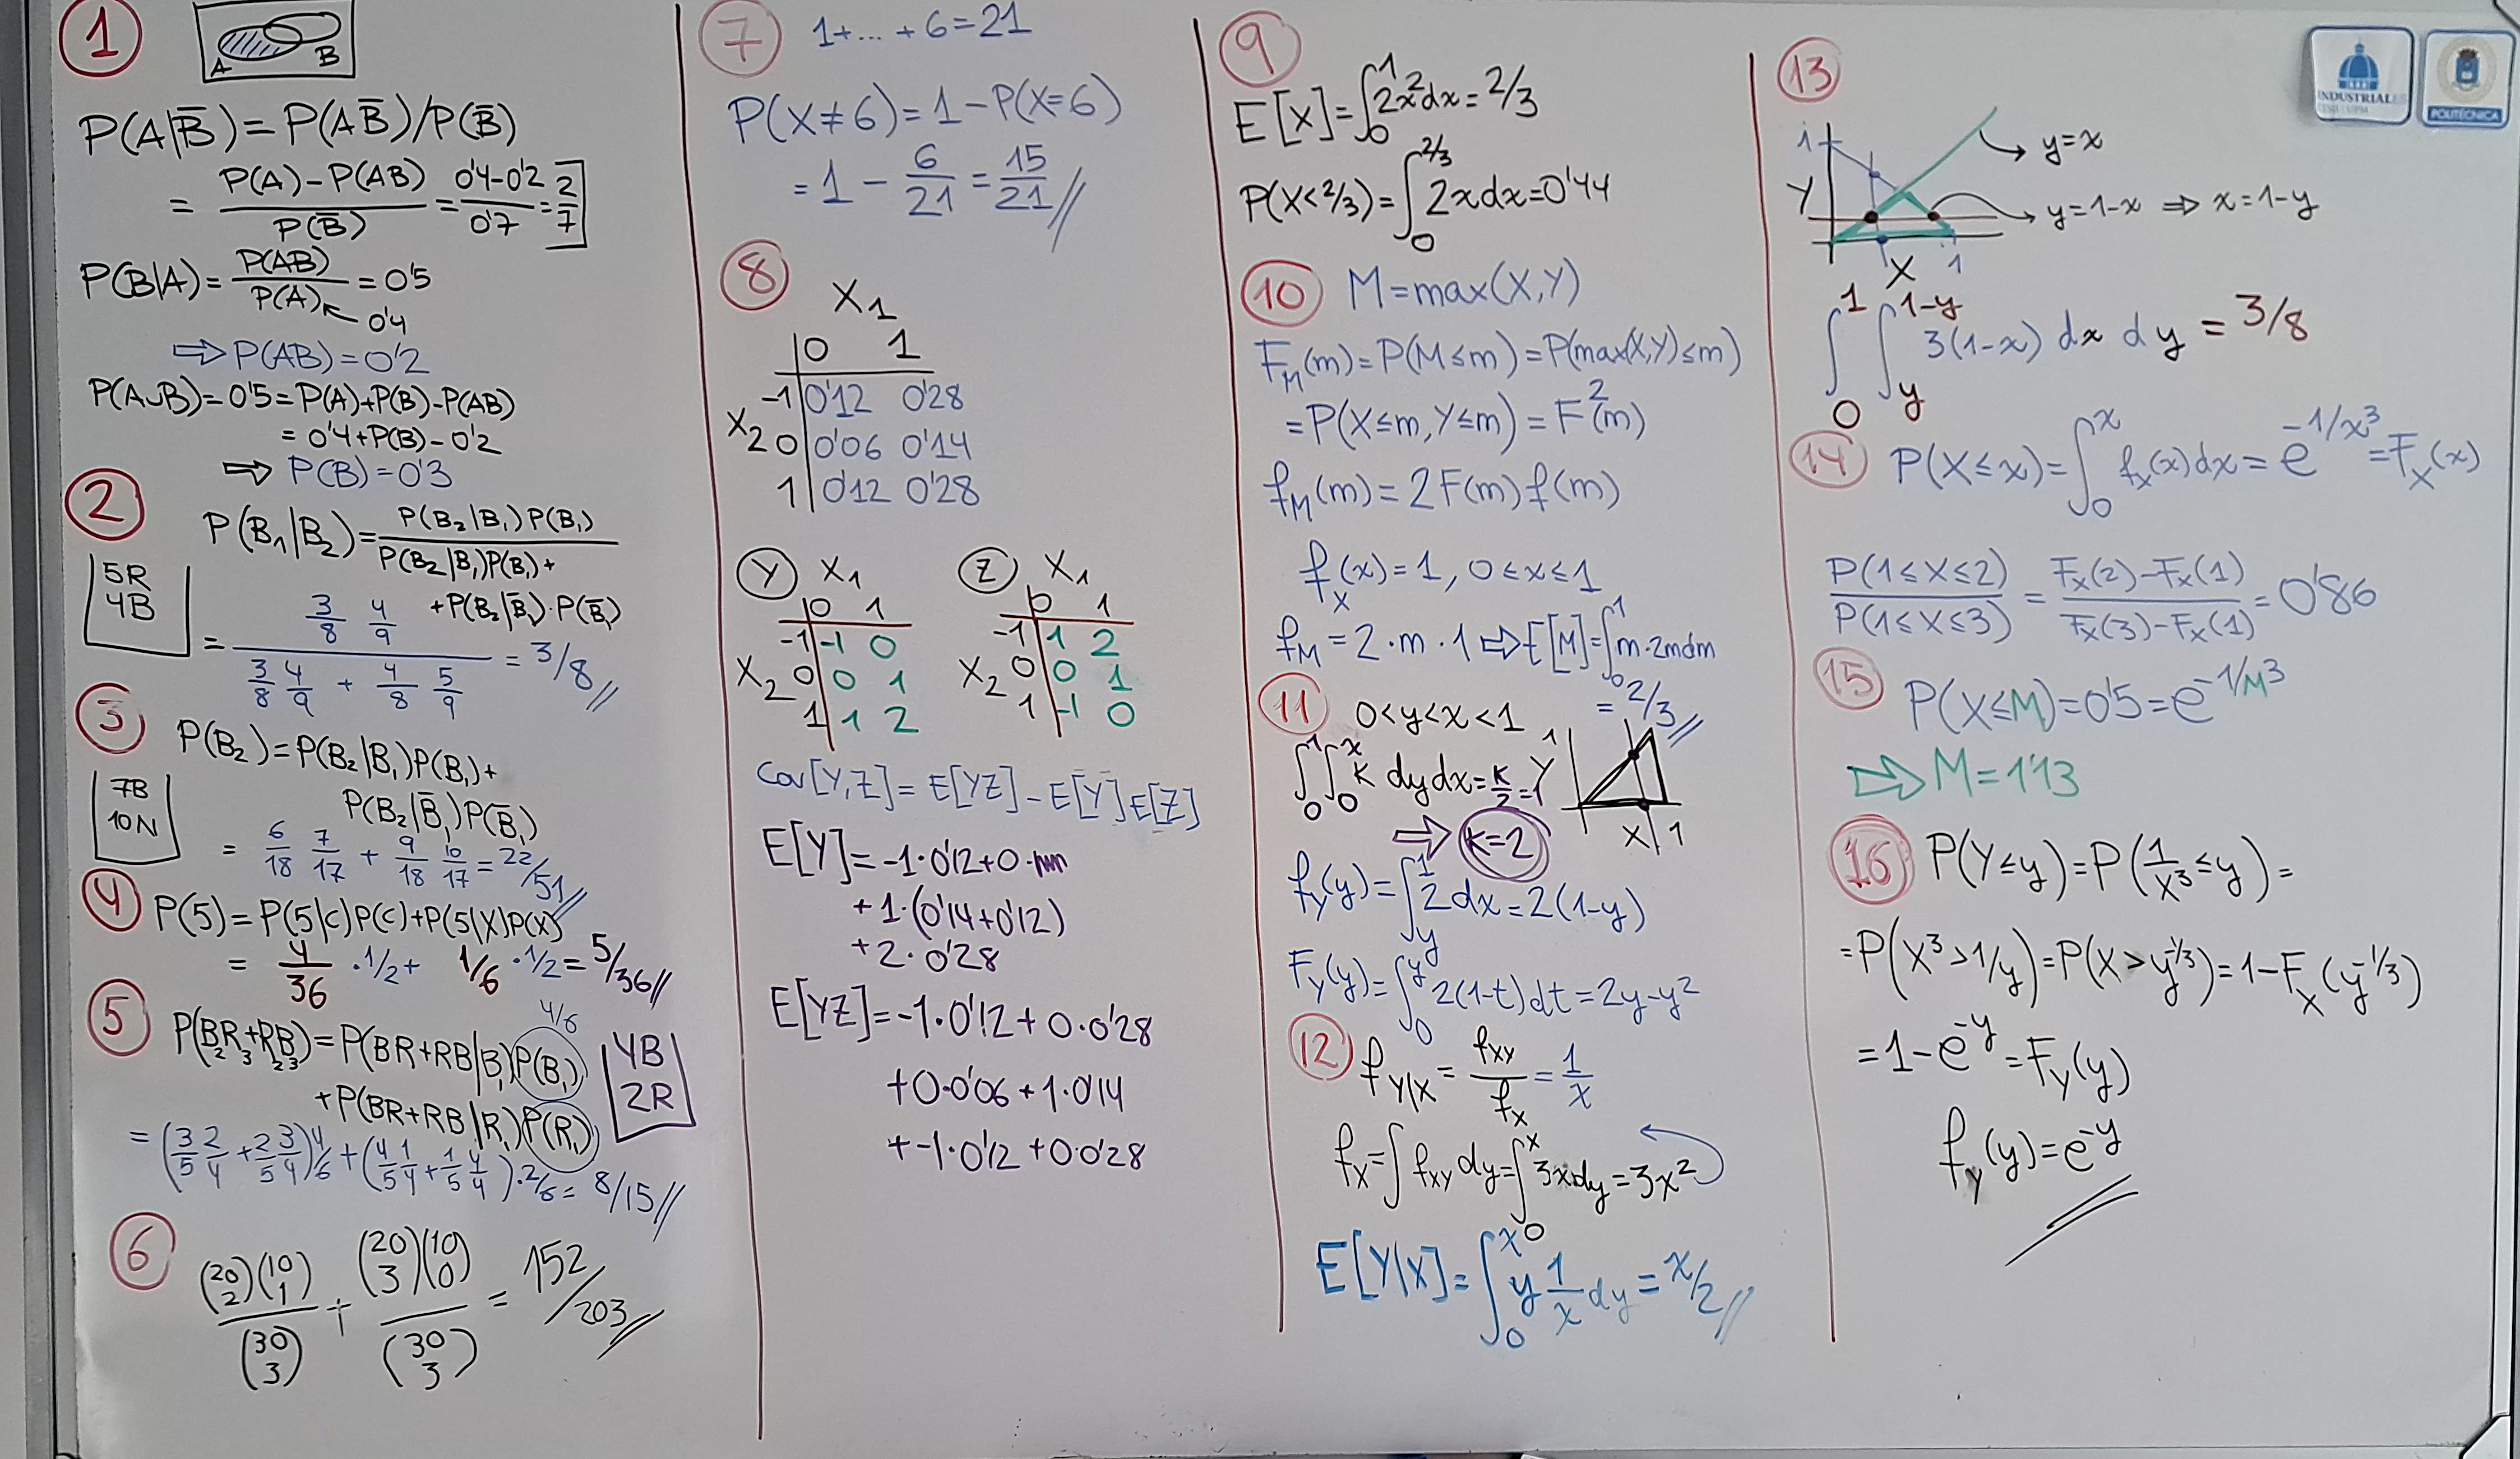 1
A B
P(A|B̄) = P(AB̄)/P(B̄)
= (P(A) - P(AB))/P(B̄) = (0'4-0'2)/0'7 = 2/7
P(B|A) = P(AB)/P(A) = 0'5
0'4
⇒ P(AB) = 0'2
P(A∪B) = 0'5 = P(A)+P(B)-P(AB)
= 0'4+P(B)-0'2
⇒ P(B) = 0'3
2
P(B₁|B₂) = P(B₂|B₁)P(B₁)/P(B₂|B₁)P(B₁)+
+P(B₂|B̄₁)·P(B̄₁)
5R
4B
= (3/8 4/9)/(3/8 4/9 + 4/8 5/9) = 3/8
3
P(B₂) = P(B₂|B₁)P(B₁)+
P(B₂|B̄₁)P(B̄₁)
7B
10N
= 6/18 7/17 + 9/18 10/17 = 22/51
4
P(5) = P(5|C)P(C)+P(5|X)P(X)
= 4/36 · 1/2 + 1/6 · 1/2 = 5/36
5
P(B₂R₃+R₂B₃) = P(BR+RB|B₁)P(B₁)
4/6
+P(BR+RB|R₁)P(R₁)
4B
2R
= (3/5 2/4 + 2/5 3/4) 4/6 + (4/5 1/4 + 1/5 4/4)·2/6 = 8/15
6
(20 2)(10 1)/(30 3) + (20 3)(10 0)/(30 3) = 152/203
7
1+...+6=21
P(X≠6) = 1-P(X=6)
= 1 - 6/21 = 15/21
8
X₁
0 1
-1 0'12 0'28
X₂ 0 0'06 0'14
1 0'12 0'28
Y X₁
0 1
-1 -1 0
X₂ 0 0 1
1 1 2
Z X₁
0 1
-1 1 2
X₂ 0 0 1
1 -1 0
Cov[Y,Z] = E[YZ] - E[Y]E[Z]
E[Y] = -1·0'12+0·
+1·(0'14+0'12)
+2·0'28
E[YZ] = -1·0'12+0·0'28
+0·0'06+1·0'14
+-1·0'12+0·0'28
9
E[X] = ∫₀¹ 2x²dx = 2/3
P(X<2/3) = ∫₀^(2/3) 2xdx = 0'44
10
M=max(X,Y)
F_M(m) = P(M≤m) = P(max(X,Y)≤m)
= P(X≤m, Y≤m) = F²(m)
f_M(m) = 2F(m)f(m)
f_X(x) = 1, 0≤x≤1
f_M = 2·m·1 ⇒ E[M] = ∫₀¹ m·2mdm
= 2/3
11
0<y<x<1
∫₀¹∫₀ˣ k dydx = k/2 = 1
1 Y X 1
⇒ k=2
f_Y(y) = ∫_y¹ 2dx = 2(1-y)
F_Y(y) = ∫₀^y 2(1-t)dt = 2y-y²
12
f_Y|X = f_XY/f_X = 1/x
f_X = ∫ f_XY dy = ∫₀ˣ 3xdy = 3x²
E[Y|X] = ∫₀ˣ y 1/x dy = x/2
13
1
y=x
Y
y=1-x ⇒ x=1-y
X 1
∫₀¹ ∫_y^(1-y) 3(1-x) dx dy = 3/8
14
P(X≤x) = ∫₀ˣ f_X(x)dx = e^(-1/x³) = F_X(x)
P(1≤X≤2)/P(1≤X≤3) = (F_X(2)-F_X(1))/(F_X(3)-F_X(1)) = 0'86
15
P(X≤M) = 0'5 = e^(-1/M³)
⇒ M=1'13
16
P(Y≤y) = P(1/X³ ≤ y) =
= P(X³ > 1/y) = P(X > y^(-1/3)) = 1-F_X(y^(-1/3))
= 1-e^(-y) = F_Y(y)
f_Y(y) = e^(-y)
INDUSTRIALES
POLITÉCNICA